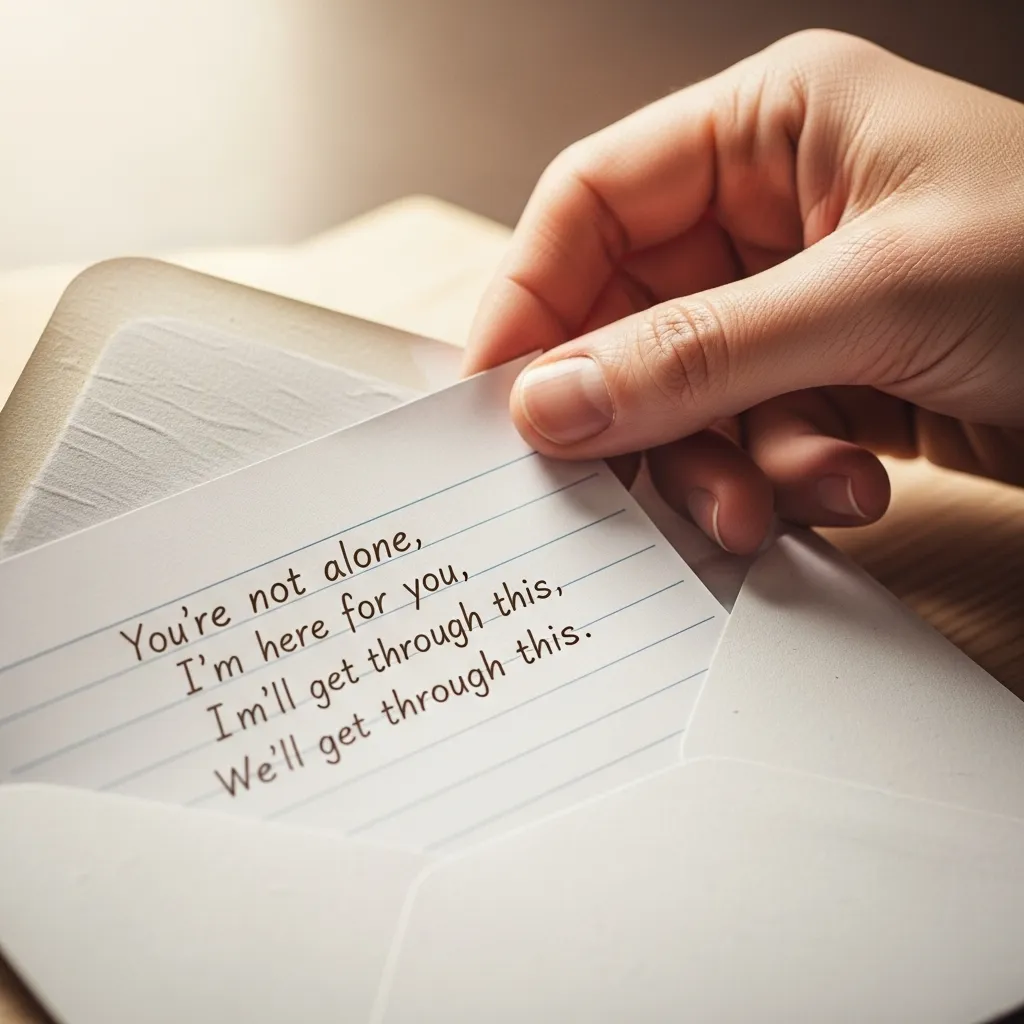 You're not alone,
I'm here for you,
Im'll get through this,
We'll get through this.